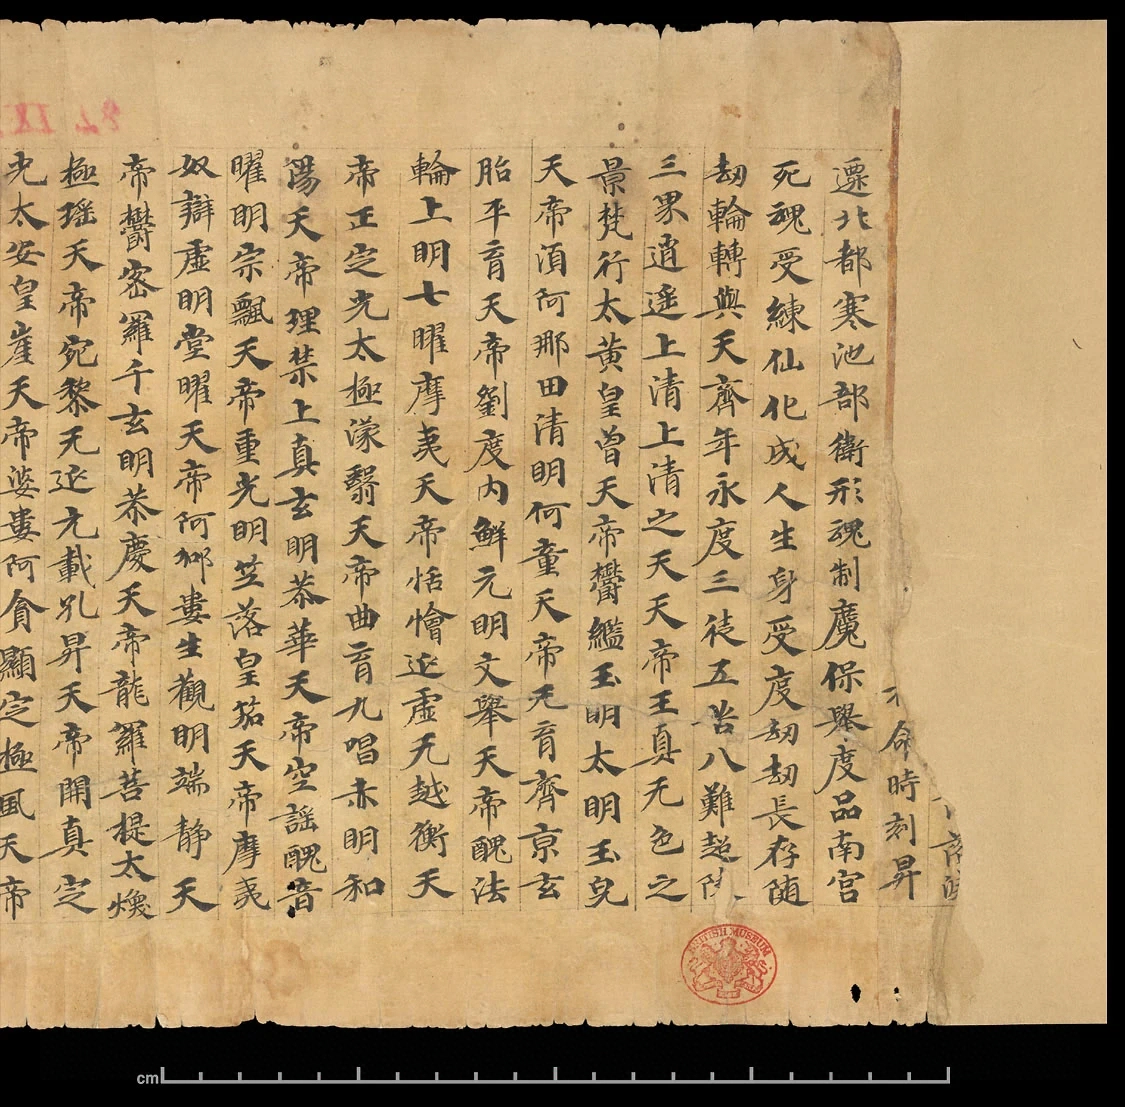 命時刻昇
遷北都寒池部衛形魂制魔保舉度品南宮
死魂受練仙化成人生身受度劫劫長存随
劫輪轉與天齊年永度三徒五苦八難超
三界逍遥上清上清之天天帝王真无色之
景梵行太黄皇曾天帝欝鑑玉明太明玉皃
天帝湏阿那田清明何童天帝无育齊京玄
胎平育天帝劉度内鮮元明文舉天帝醜法
輪上明七曜摩夷天帝恬㑹延虚无越衡天
帝正定光太極濛翳天帝曲育九唱赤明和
陽天帝理禁上真玄明恭華天帝空謡醜音
曜明宗飄天帝重光明笠落皇笳天帝摩夷
妙辯虚明堂曜天帝阿䣊婁生觀明端静天
帝欝密羅千玄明恭慶天帝龍羅菩提太煥
極瑶天帝宛黎无延元載孔昇天帝開真定
光太安皇崖天帝婆婁阿貪顯定極風天帝
cm
BRITISH MUSEUM